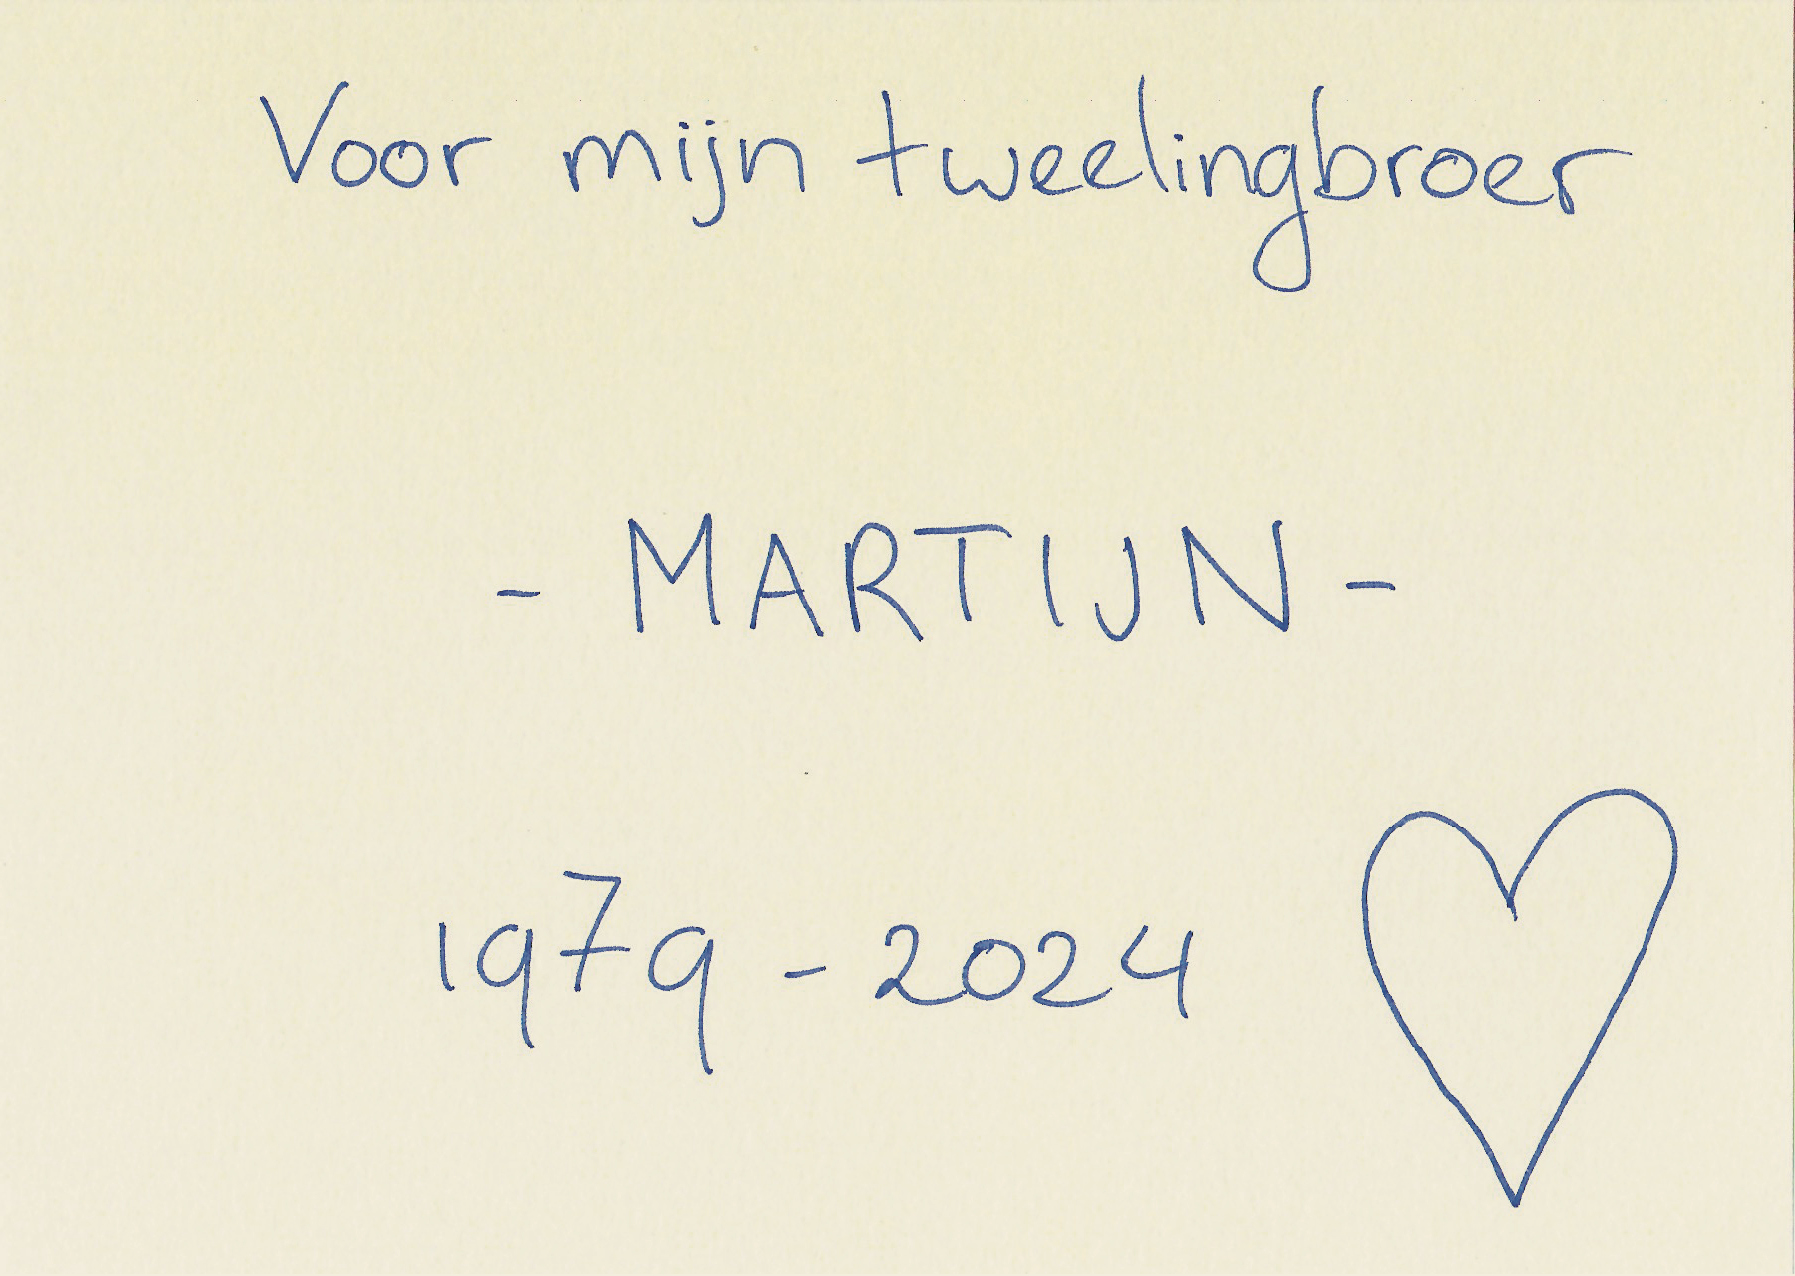 Voor mijn tweelingbroer
- MARTIJN -
1979 - 2024